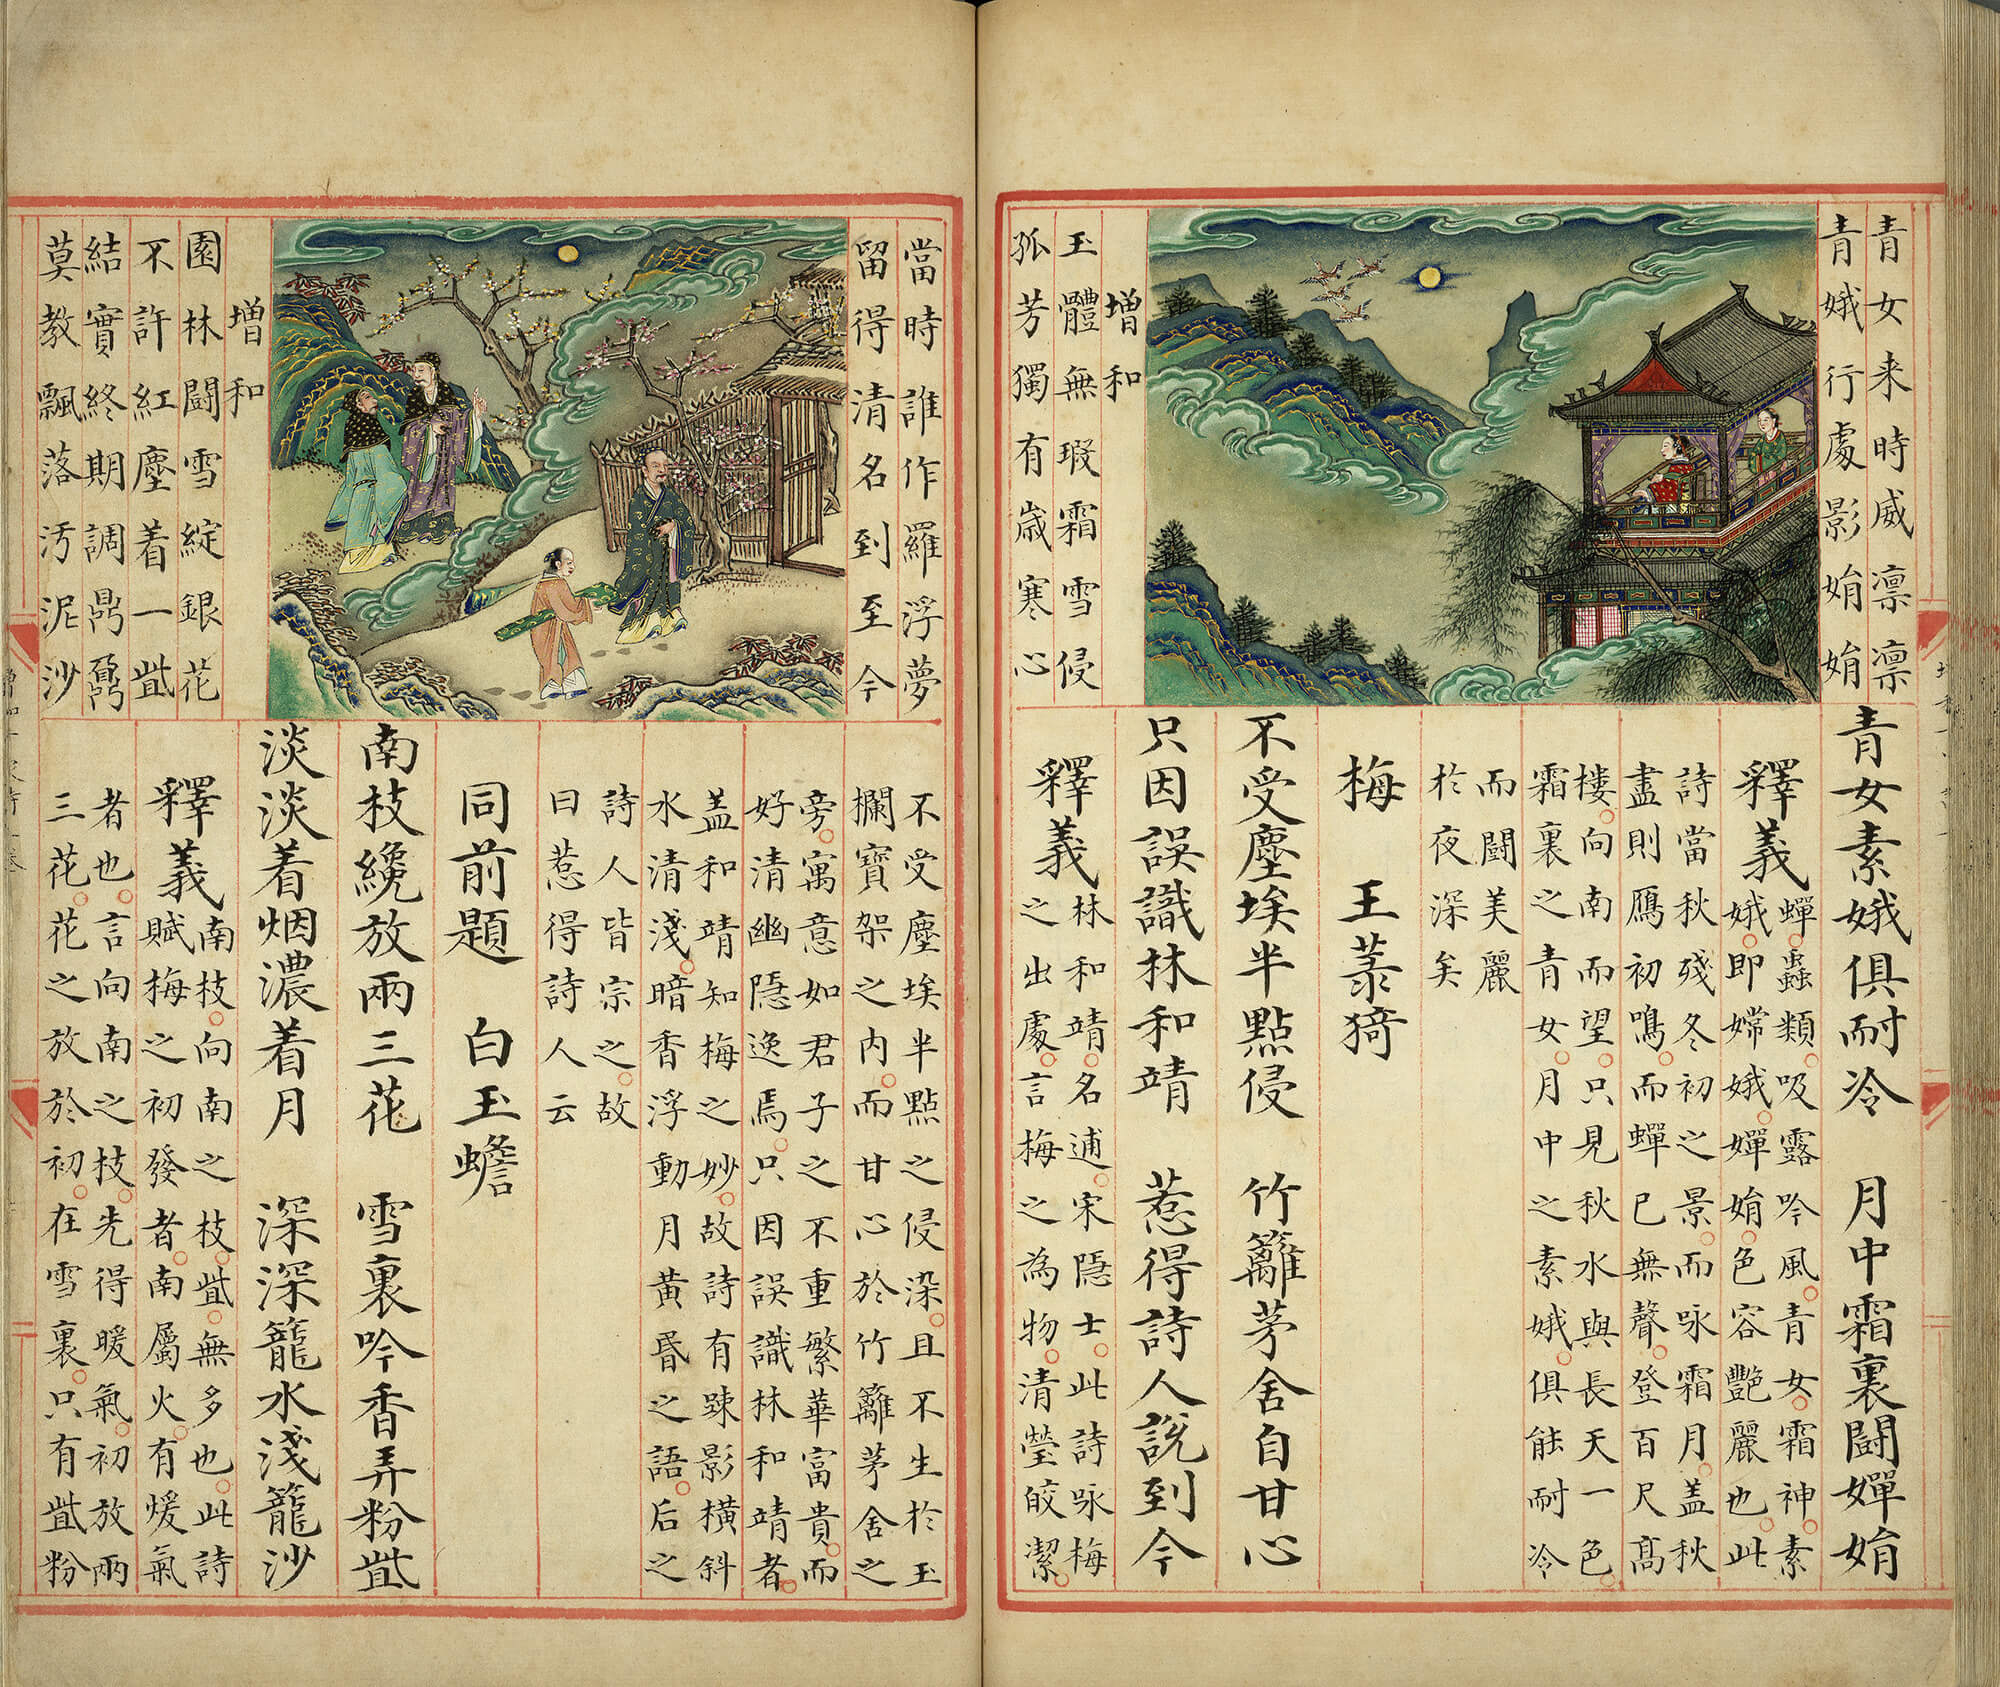 青女来時威凛凛
青娥行處影娟娟
增和
玉體無瑕霜雪侵
孤芳獨有歳寒心
青女素娥俱耐冷　月中霜裏闘嬋娟
釋義
蟬蟲類吸露吟風青女霜神素
娥即嫦娥嬋娟色容艷麗也此
詩當秋殘冬初之景而咏霜月盖秋
盡則鴈初鳴而蟬已無聲登百尺髙
樓向南而望只見秋水與長天一色
霜裏之青女月中之素娥俱能耐冷
而闘美麗
於夜深矣
梅　王菉猗
不受塵埃半點侵　竹籬茅舍自甘心
只因誤識林和靖　惹得詩人說到今
釋義
林和靖名逋宋隱士此詩咏梅
之出處言梅之為物清瑩皎潔
當時誰作羅浮夢
留得清名到至今
增和
園林闘雪綻銀花
不許紅塵着一些
結實終期調鼎鼐
莫教飄落汚泥沙
不受塵埃半點之侵染且不生於玉
欄寶架之内而甘心於竹籬茅舍之
旁寓意如君子之不重繁華富貴而
好清幽隱逸焉只因誤識林和靖者
盖和靖知梅之妙故詩有踈影橫斜
水清淺暗香浮動月黄昏之語后之
詩人皆宗之故
曰惹得詩人云
同前題　白玉蟾
南枝纔放兩三花　雪裏吟香弄粉些
淡淡着烟濃着月　深深籠水淺籠沙
釋義
南枝向南之枝些無多也此詩
賦梅之初發者南屬火有煖氣
者也言向南之枝先得暖氣初放兩
三花花之放於初在雪裏只有些粉